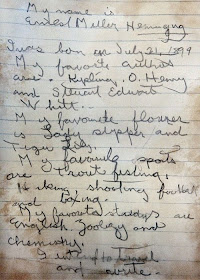 My name is
Ernest Miller Hemingway
I was born on July 21, 1899
My favorite authors
are Kipling, O. Henry
and Steuart Edward
Whitt.
My favourite flower
is Lady slipper and
Tiger Lily.
My favourite sports
are Trout fishing,
Hiking, shooting football
and boxing.
My favourite studies are
English, Zoology and
Chemistry.
I intend to travel
and write.